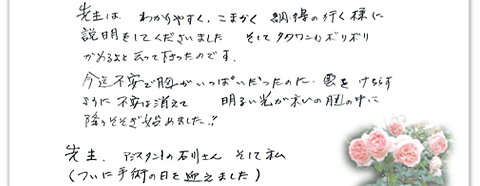 先生は わかりやすく、こまかく 納得の行く様に
説明をしてくださいました そしてタクワンもボリボリ
かめるよと云って下さったのです。
今迄不安で胸がいっぱいだったのに、雲をけちらす
ように不安は消えて 明るい光が私の胸の中に
降りそそぎ始めました。
先生、アシスタントの石川さん そして私
(ついに手術の日を迎えました)